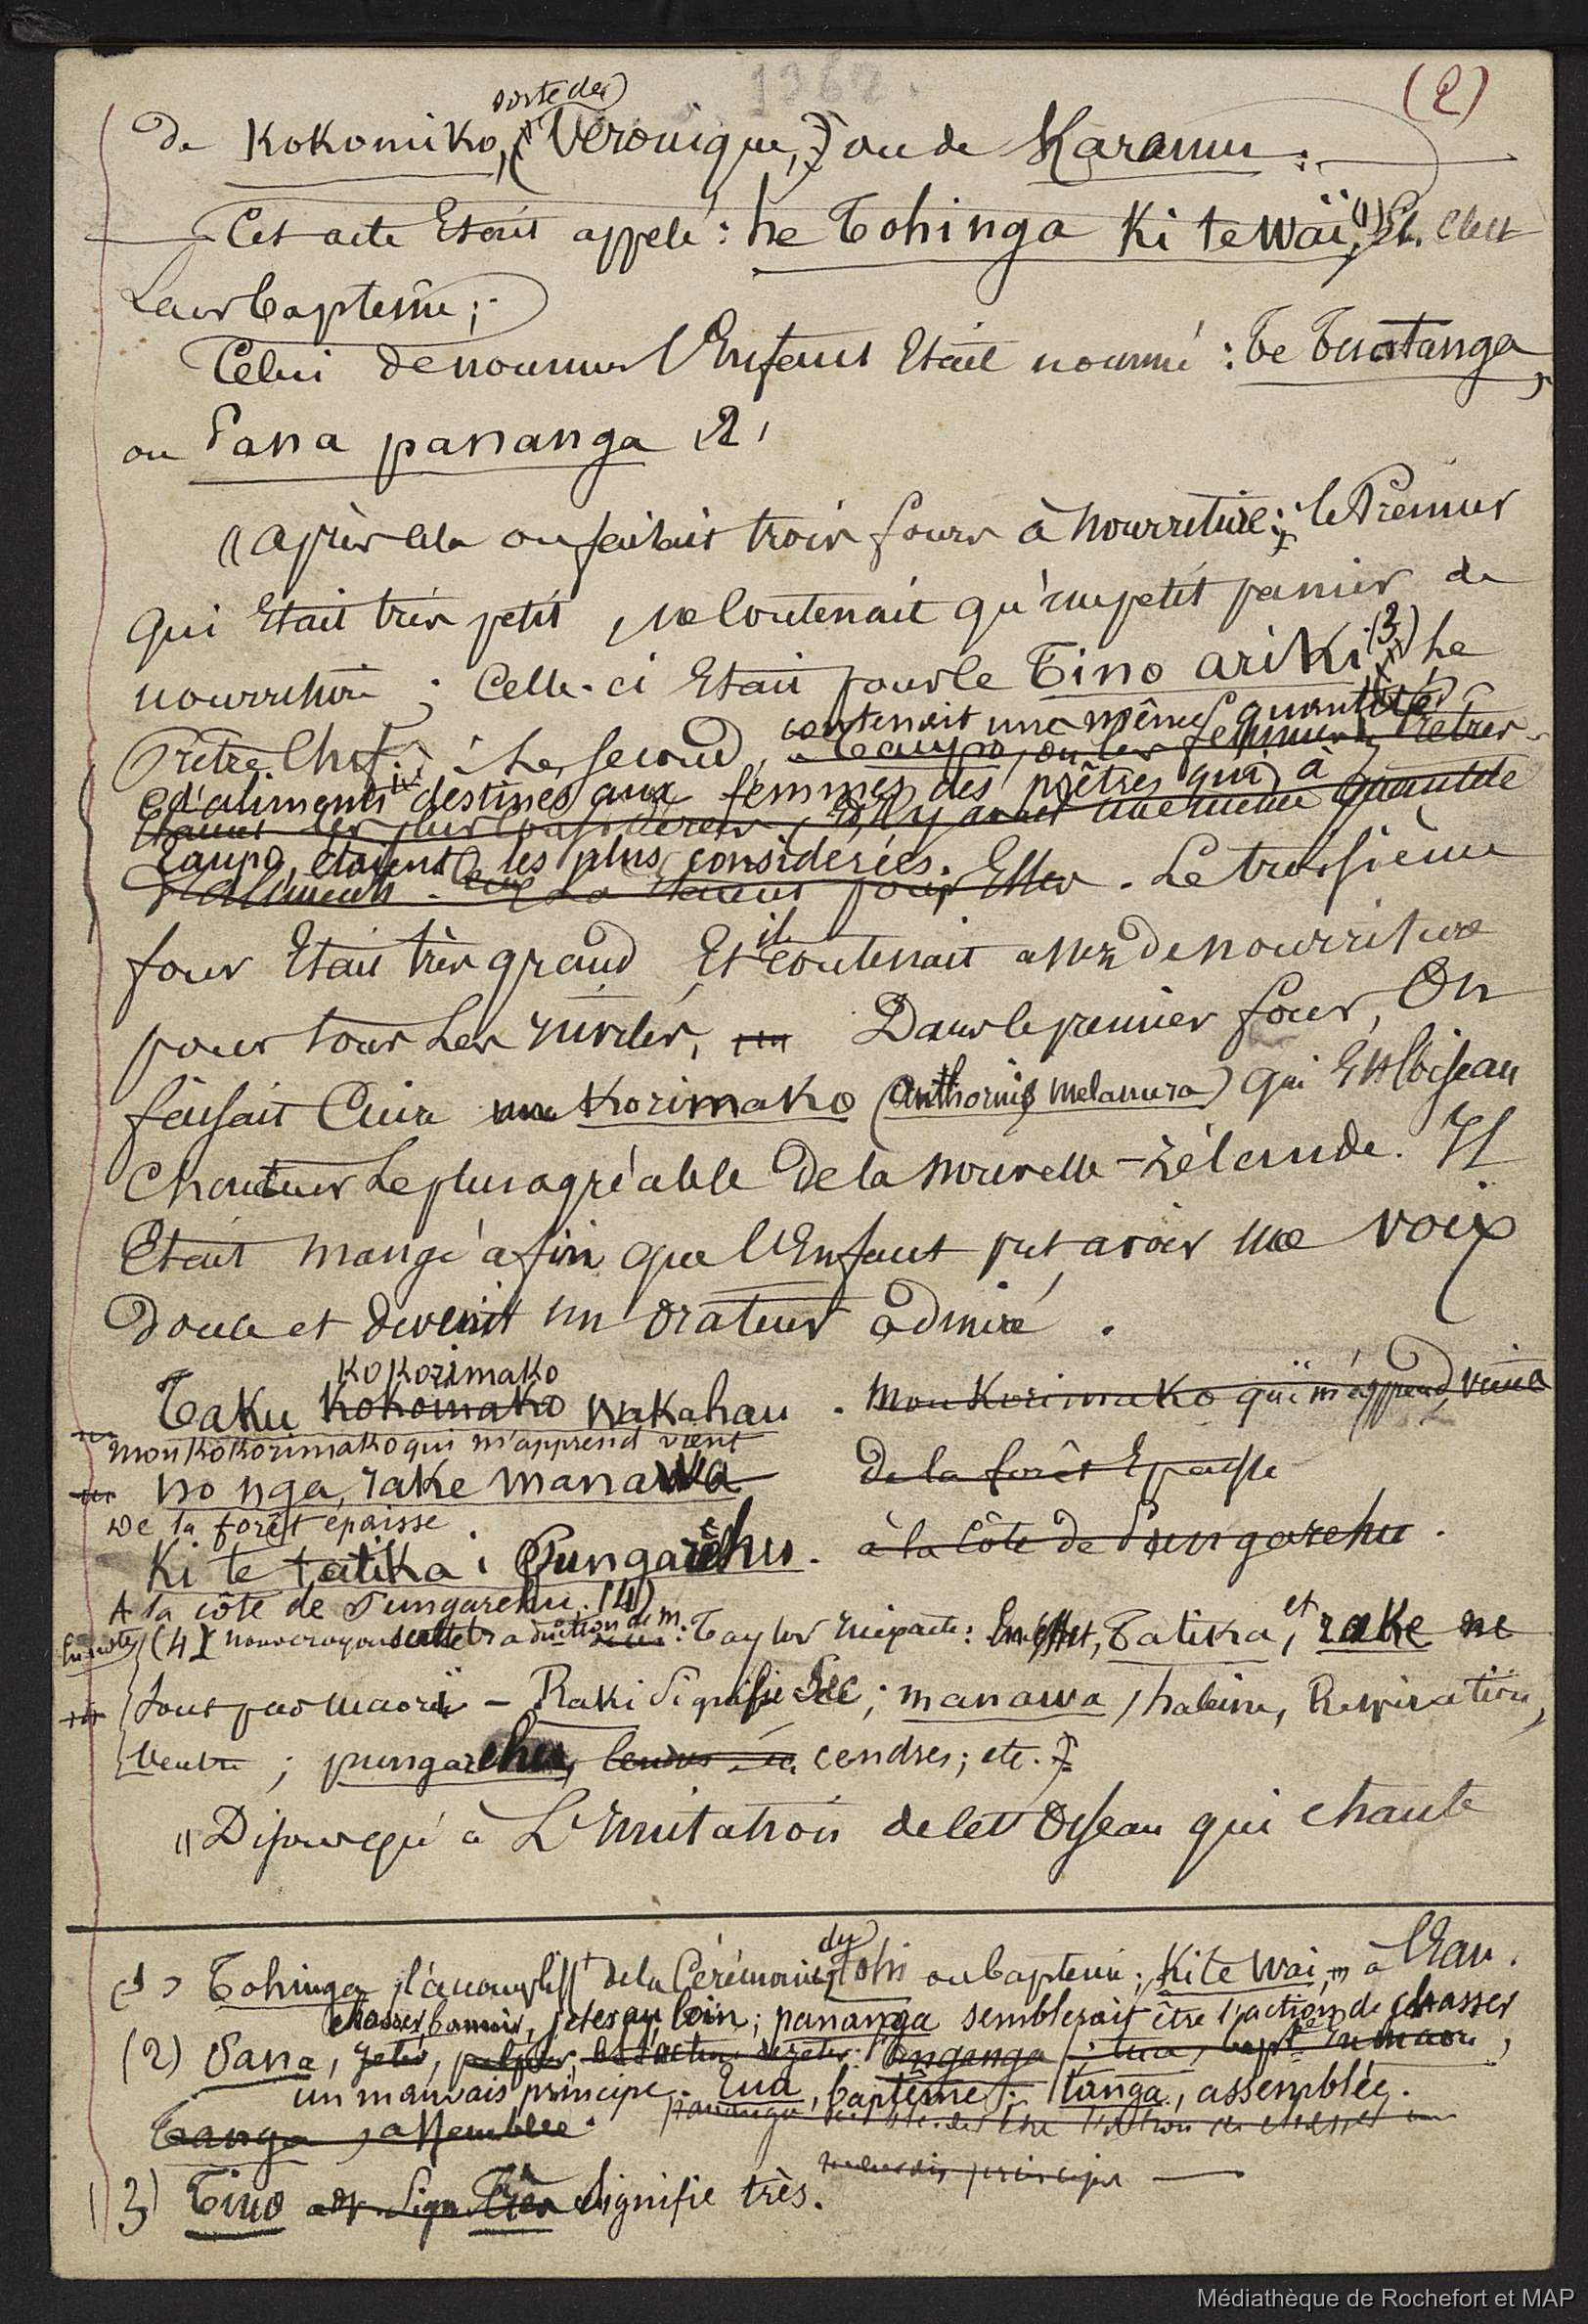 1362.
(2)
sorte de
de Kokomiko, (Veronique,) ou de Karamu.
Cet acte Etait appelé: he Tohinga Ki te Waï, (1) Et c'est
Leur baptême;
Celui de nommer l'Enfant Etait nommé: Te Tuatanga,
ou Pana pananga (2)
"après cela on faisait trois fours à nourriture; le Premier
qui Etait très petit, ne contenait qu'un petit panier de
nourriture; Celle-ci Etait pour le Tino ariki (3) he
Prêtre Chef; Le second, contenait une même quantité
Taupo, ou les femmes Prêtres
d'aliments destinés aux femmes des prêtres qui, à
Etaient les plus considérées, il y avait une même quantité
Taupo, étaient les plus considérées.
d'aliments pour Elles. Le troisième
four Etait très grand Et il contenait assez de nourriture
pour tous Les invités, Dans le premier four, On
faisait Cuire un Korimako (anthornis melanura) qui Est l'oiseau
Chanteur Le plus agréable de la Nouvelle-Zélande. Il
Etait mangé afin que l'Enfant put avoir une voix
douce et devenir un Orateur admiré.
Kokorimako
Taku Kokomako wakahau. Mon Korimako qui m'apprend, vient
mon Kokorimako qui m'apprend vient
no nga rake manawa de la forêt Epaisse
De la forêt épaisse
Ki te tatika i Pungarehu. à la Côte de Pungarehu.
A la côte de Pungarehu. (4)
(4) nous croyons cette traduction de m. Taylor inexacte: En effet, Tatika, et rake ne
sont pas maori - Raki signifie Sec; manawa, haleine, Respiration,
Ventre; pungarehu, cendres; etc.
"Dis jusqu'à L'Imitation de cet Oiseau qui chante
(1) Tohinga, l'accompliss't de la Cérémonie du Tohi ou baptême; Ki te Wai, à l'Eau.
chasser, bannir, jeter au loin; pananga semblerait être l'action de chasser
(2) Pana, jeter, l'action de jeter: tua, bapt. en maori,
un mauvais principe. Tua, baptême; tanga, assemblée.
Tanga, assemblée. pananga être l'action de chasser un
mauvais principe
(3) Tino Très signifie très.
Médiathèque de Rochefort et MAP